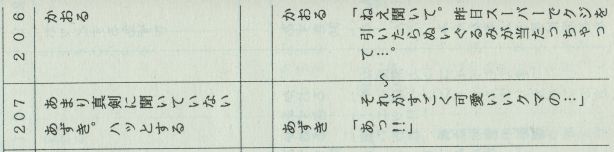 206
かおる
「ねえ聞いて。昨日スーパーでクジを
引いたらぬいぐるみが当たっちゃっ
て…。
それがすごく可愛いクマの…」
207
あまり真剣に聞いていない
あずき。ハッとする
あずき
「あっ!!」